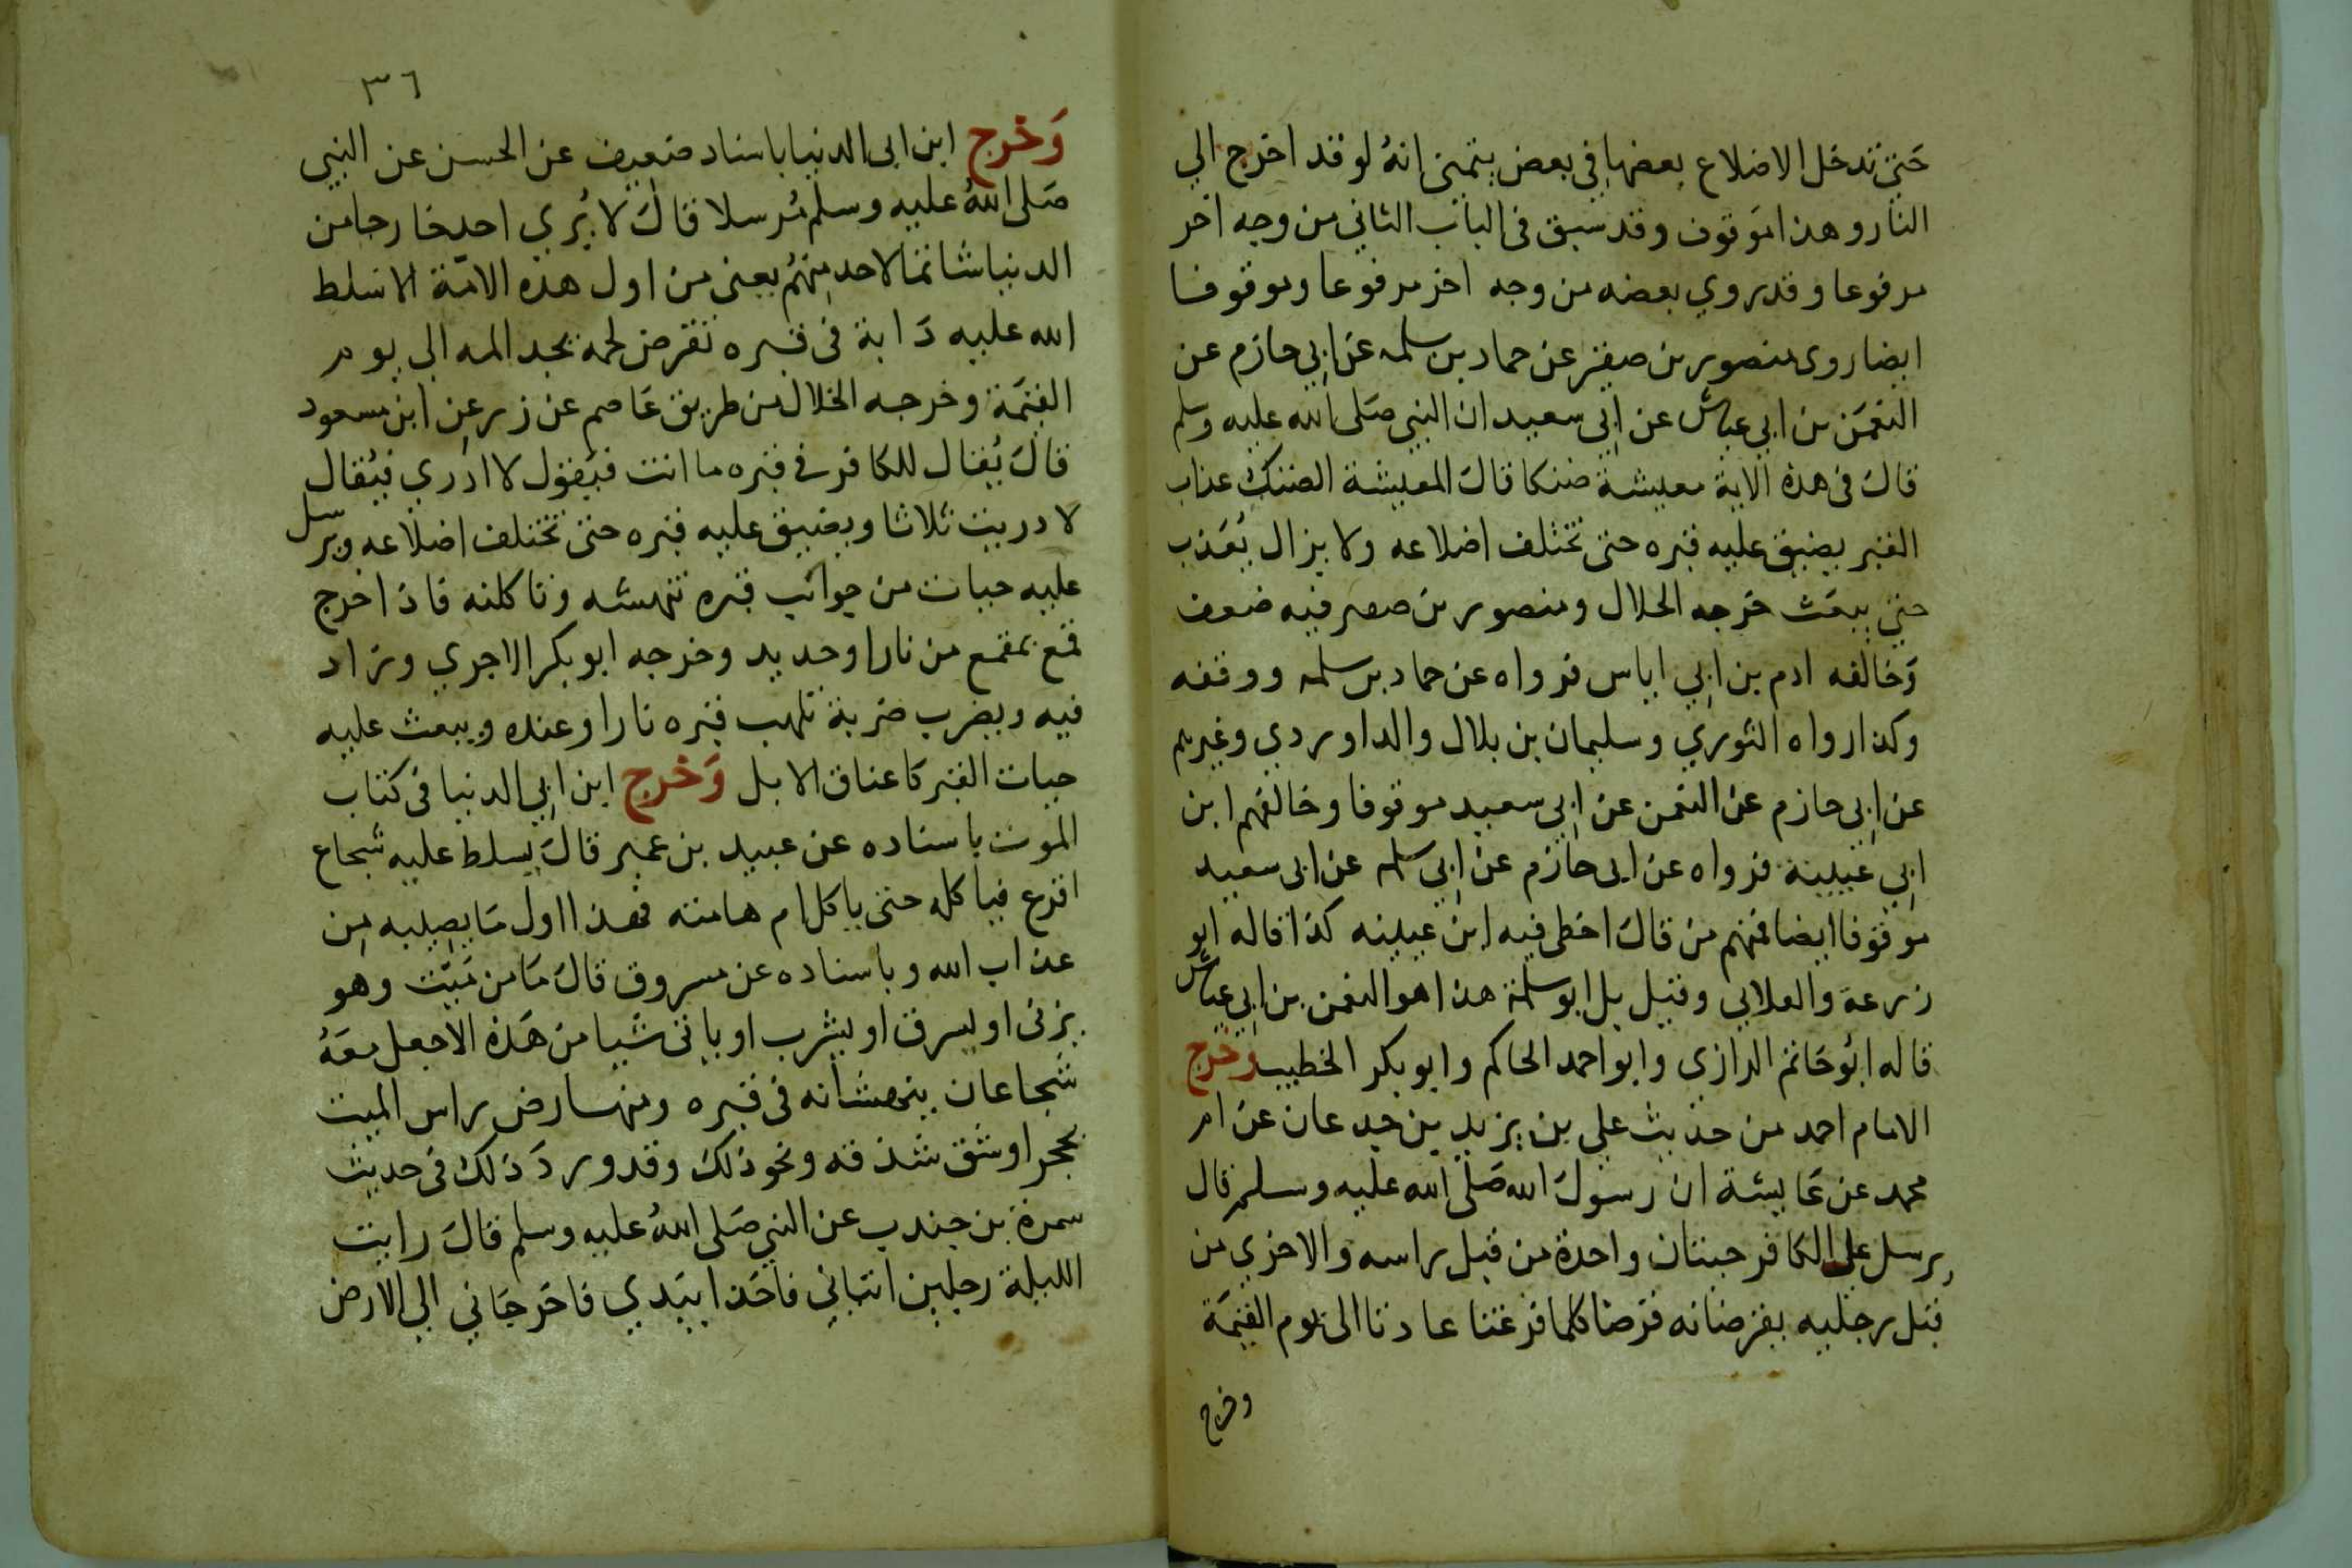 حتى تدخل الاضلاع بعضها في بعض يتمنى انهُ لو قد اخرج الي
النار وهذا موقوف وقد سبق في الباب الثاني من وجه اخر
مرفوعا وقد روي بعضه من وجه اخر مرفوعا وموقوفا
ايضا روى منصور بن صقر عن حماد بن سلمه عن ابي حازم عن
النعمن بن ابي عياش عن ابي سعيد ان النبي صَلى الله عليه وسلم
قال في هذه الاية معيشة ضنكا قال المعيشة الضنك عذاب
القبر يضيق عليه قبره حتى تختلف اضلاعه ولا يزال يُعَذب
حتى يبعَث خرجه الخلال ومنصور بن صقر فيه ضعف
وَخالفه ادم بن ابي اياس فرواه عن حماد بن سلمه ووقفه
وكذا رواه الثوري وسليمان بن بلال والداوردي وغيرهم
عن ابي حازم عن النعمن عن ابي سعيد موقوفا وخالفهم ابن
ابي عيينة فرواه عن ابي حازم عن ابي سلمه عن ابي سعيد
موقوفا ايضا فمنهم من قال اخطى فيه ابن عيينه كذا قاله ابو
زرعة والعلابي وقيل بل ابو سلمة هذا هو النعمن بن ابي عياش
قاله ابُو حَاتم الرازي وابو احمد الحاكم وابو بكر الخطيب وخرج
الامام احمد من حديث علي بن يزيد بن جدعان عن ام
محمد عن عَايشة ان رسول الله صَلى الله عليه وسلم قال
يرسل على الكافر حيتان واحدة من قبل راسه والاخري من
قبل رجليه يقرضانه قرضا كلما فرغتا عادتا الى يوم القيمَة
وخرج
٣٦
وَخرج ابن ابي الدنيا باسناد ضعيف عن الحسن عن النبي
صَلى اللهُ عليه وسلم مُرسلا قال لا يُري احد خارجا من
الدنيا شاتما لاحد منهُم يعني من اول هذه الامّة الا سَلط
الله عليه دَابة في قبره تقرض لحمه يجد المه الى يوم
القيمَة وخرجه الخلال من طريق عَاصم عن زر عن ابن مسعود
قال يُقال للكافر في قبره ما انت فيَقول لا ادري فيُقال
لا دريت ثلاثا ويضيق عليه قبره حتى تختلف اضلاعه ويرسل
عليه حيات من جوانب قبره تنهشه وتاكله فاذا خرج
قمع بمقمع من نار او حديد وخرجه ابو بكر الاجري وزاد
فيه ويضرب ضربة تلهب قبره نارا وعنده ويبعث عليه
حيات القبر كَاعناق الابل وَخرج ابن ابي الدنيا في كتاب
الموت باسناده عن عبيد بن عمير قال يسلط عليه شجاع
اقرع فياكله حتى ياكل ام هامته فهذا اول مَا يصيبه من
عذاب الله وباسناده عن مسروق قال مَا من مَيّت وهو
يزني او يسرق او يشرب او ياتى شَيا من هَذه الا جعل معَهُ
شجاعان ينهشانه في قبره ومنها رض راس الميت
بحجر او شق شدقه ونحو ذلك وقد ورد ذلك في حديث
سمرة بن جندب عن النبي صَلى اللهُ عليه وسلم قال رايت
الليلة رجلين اتياني فاخذا بيَدي فاخرجَاني الي الارض